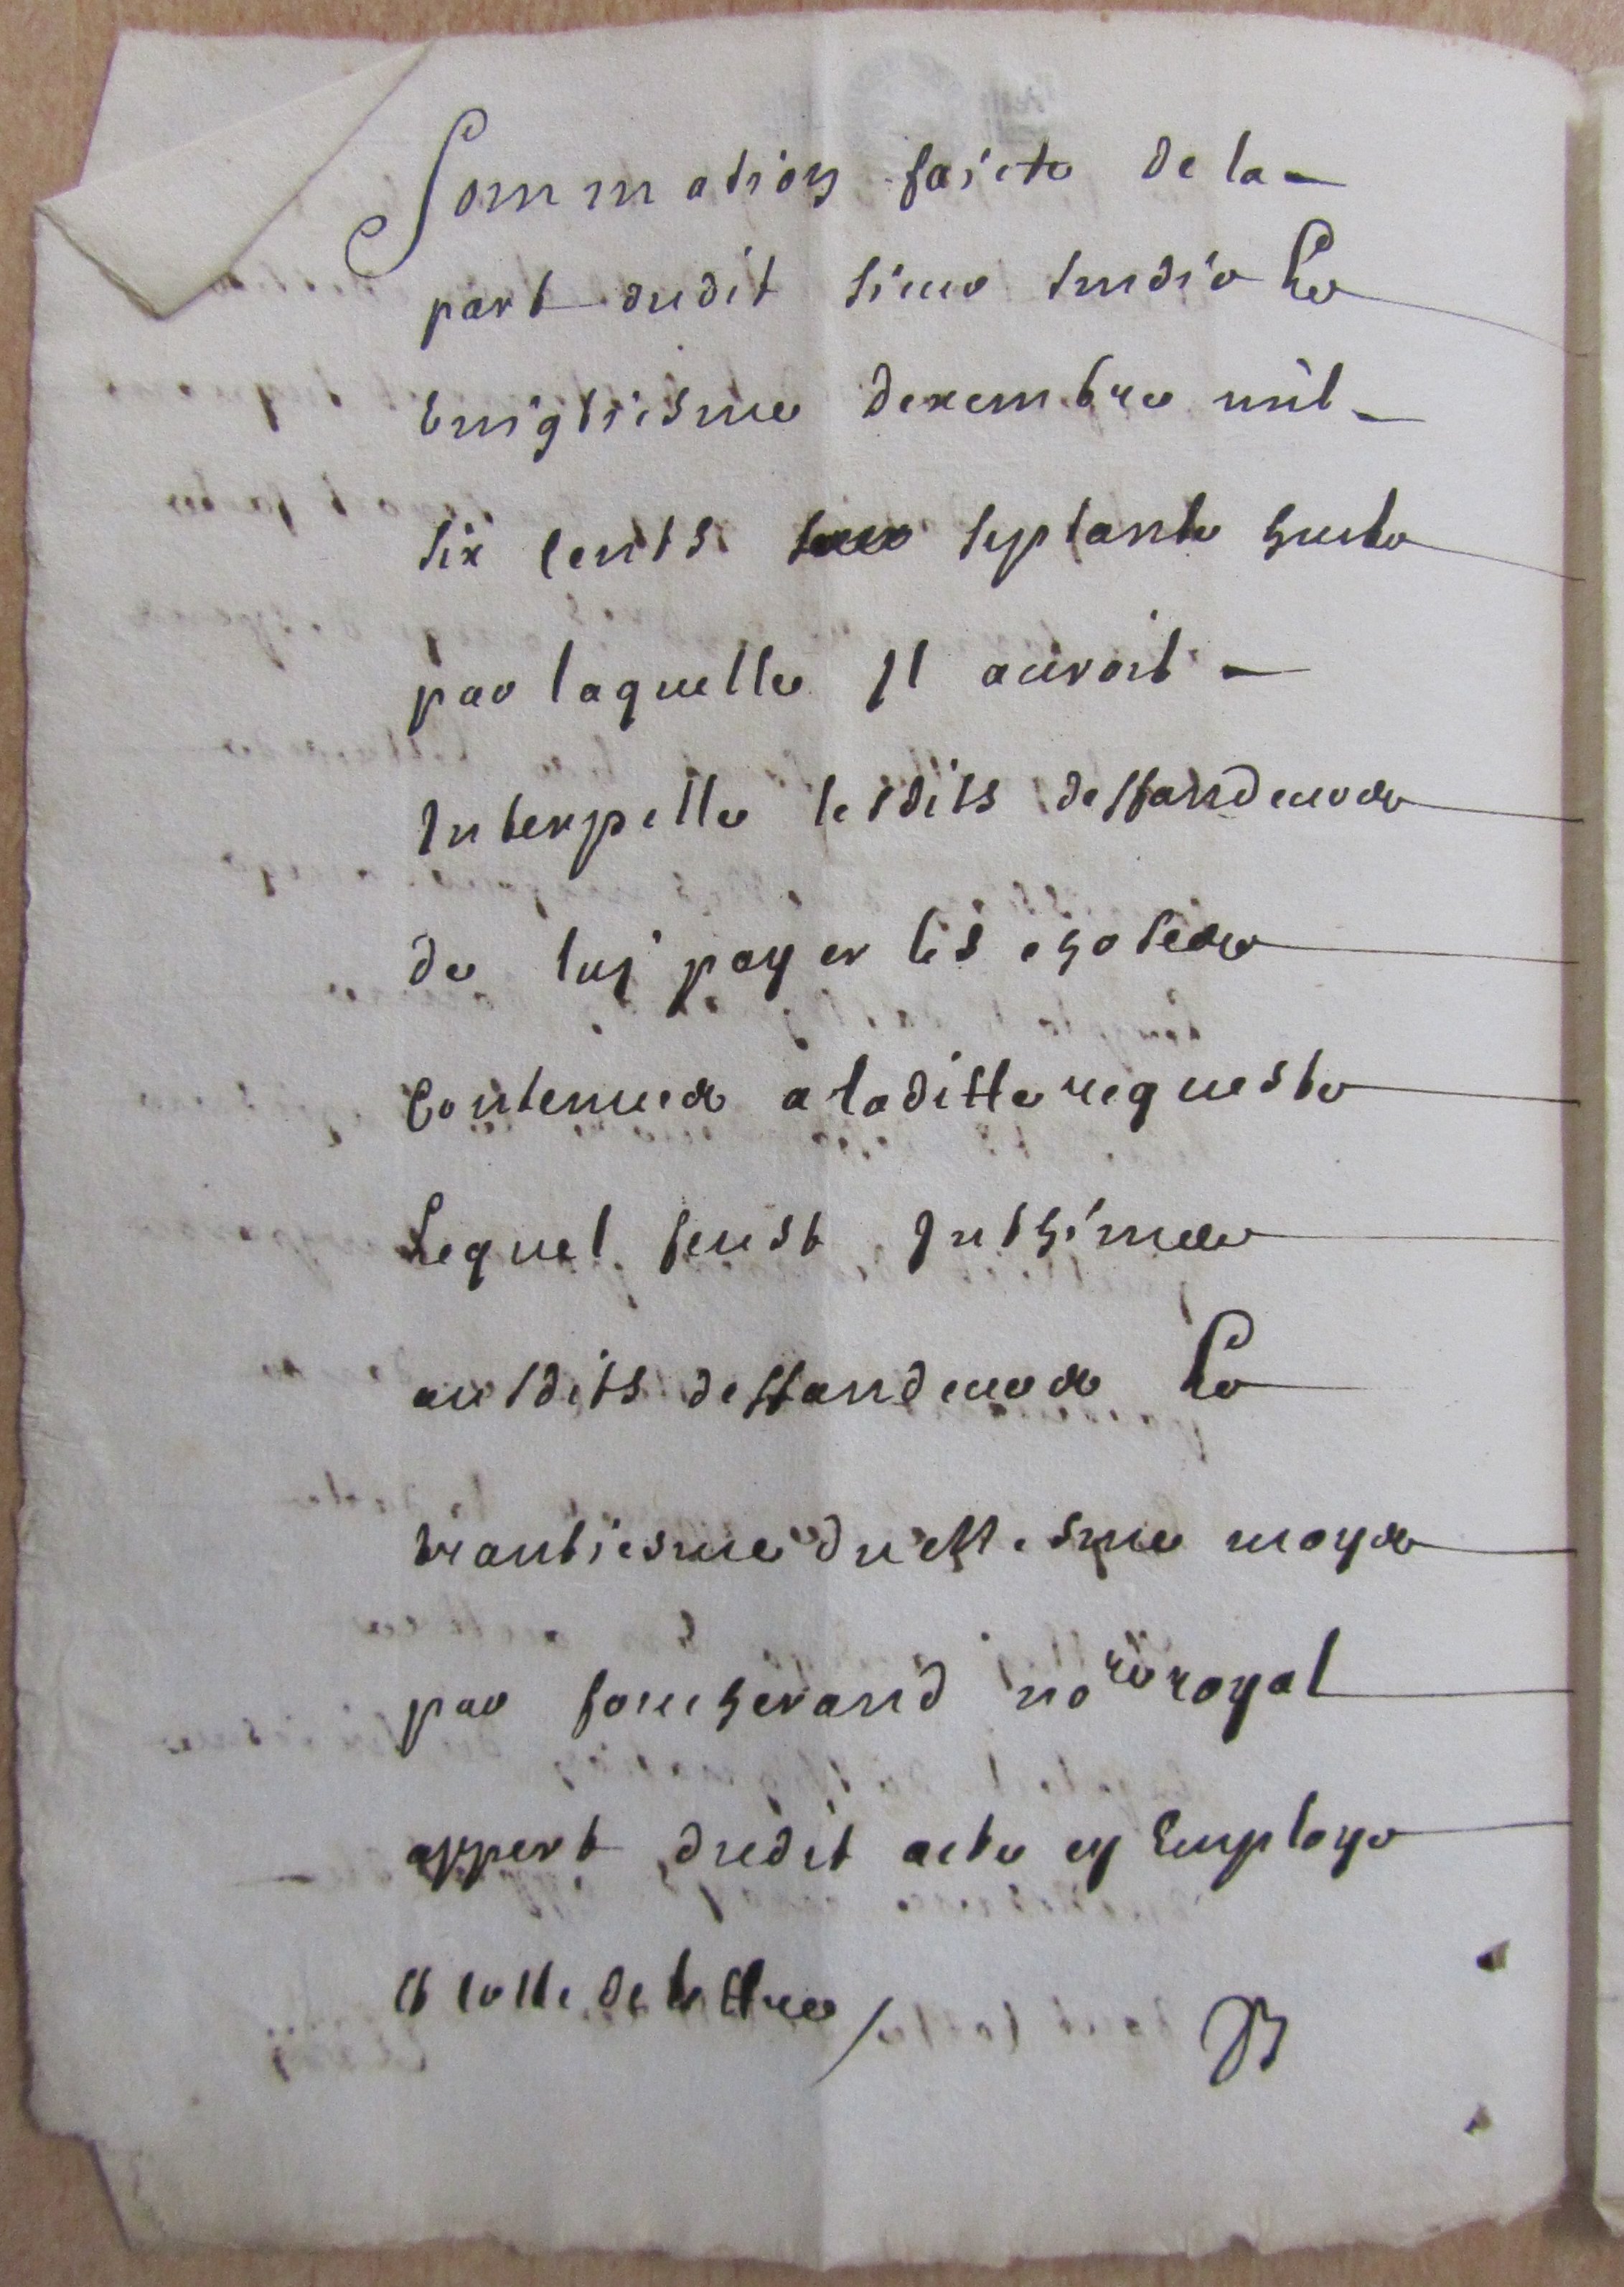 Sommation faicte de la
part dudit sieur sindic Le
vingtiesme dexembre mil
six cents septante huite
par laquelle Il auroit
Interpelle lesdits deffandeurs
de luy payer les choses
Contenues a laditte requeste
Lequel feust Inthimee
ausdits deffandeurs Le
trantiesme du Mesme moys
par foucherand no.re royal
appert dudit acte cy Employe
et cotte de lettre / B